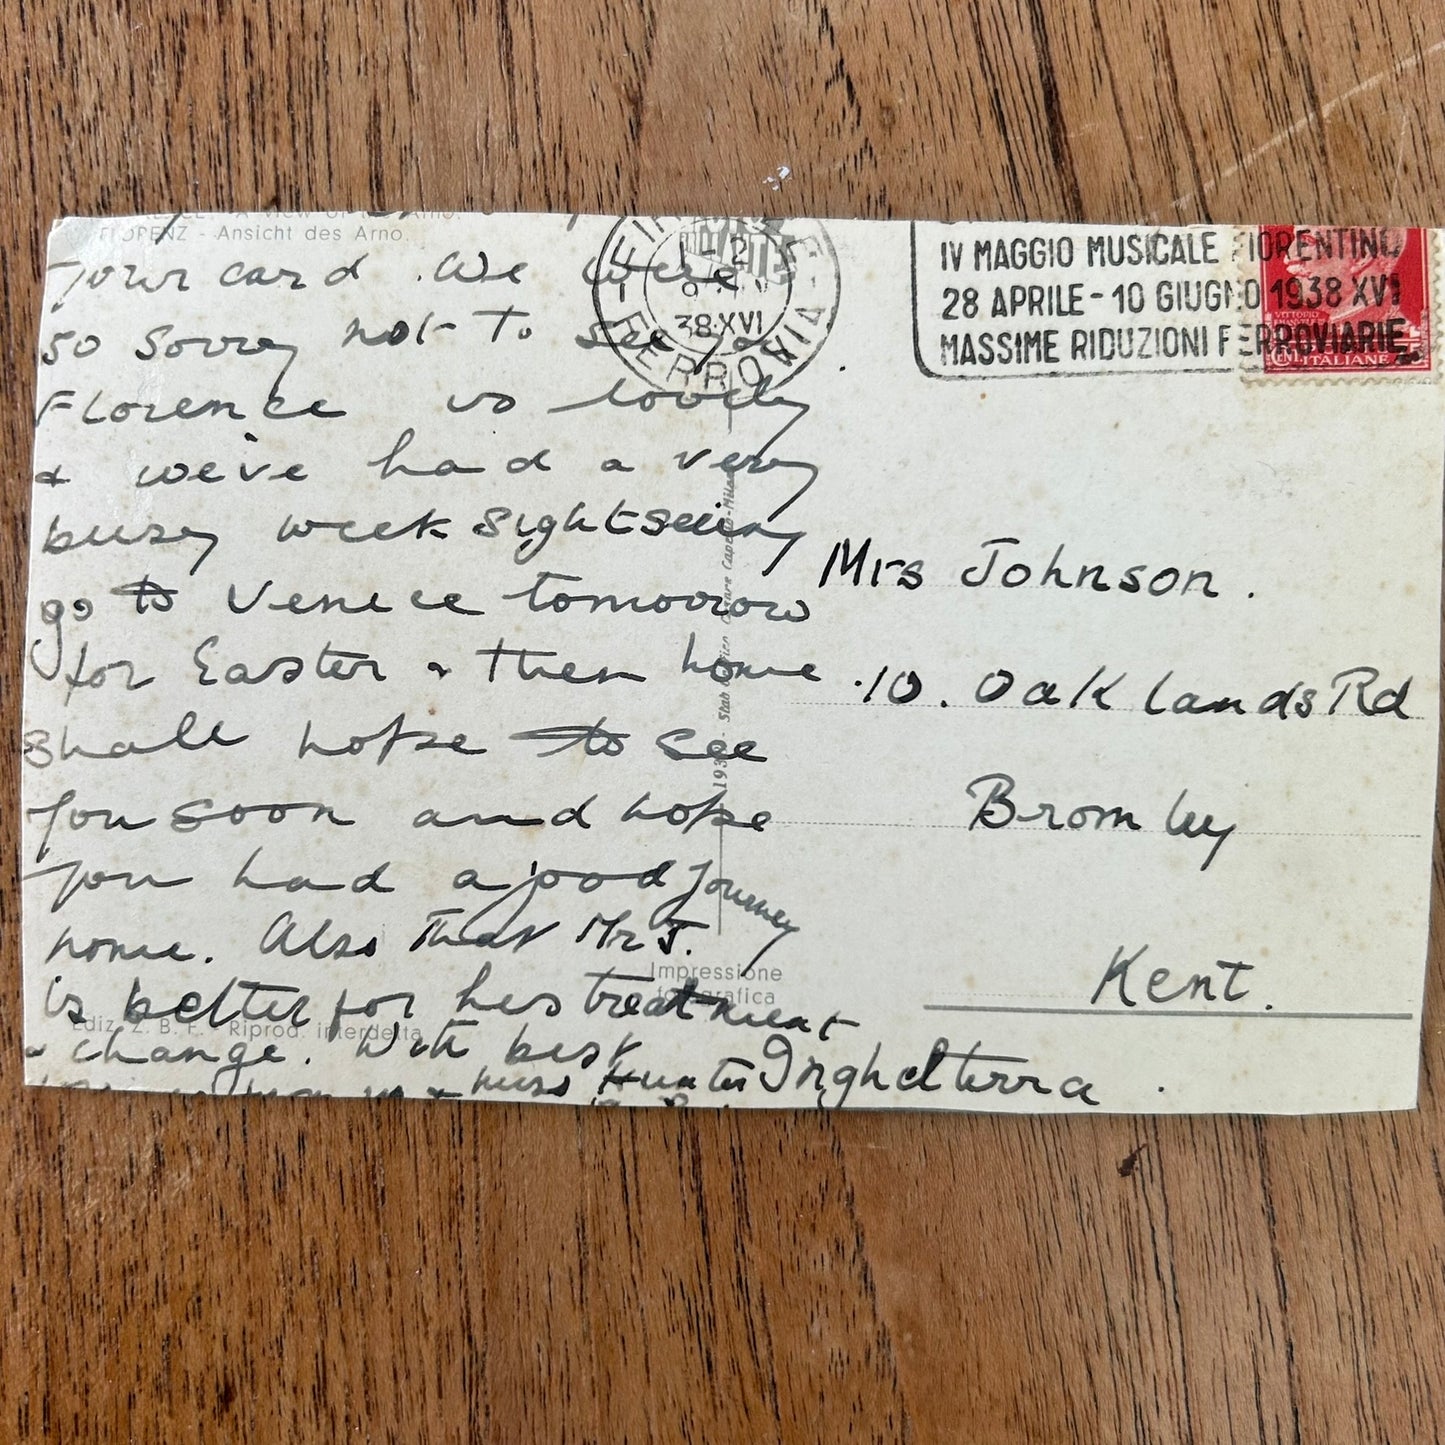 A View of the Arno.
FLORENZ - Ansicht des Arno.
your card. We were
so sorry not to see you
Florence is lovely
& we've had a very
busy week sightseeing
go to Venice tomorrow
for Easter & then home
Shall hope to see
you soon and hope
you had a good journey
home. Also that Mr J.
is better for his treatment
& change. With best
Miss Hunter
Ediz. Z. B. F. - Riprod. interdetta
Impressione
fotografica
FERROVIA
38·XVI
IV MAGGIO MUSICALE FIORENTINO
28 APRILE - 10 GIUGNO 1938 XVI
MASSIME RIDUZIONI FERROVIARIE
ITALIANE
Mrs Johnson.
10. Oaklands Rd
Bromley
Kent.
Inghelterra